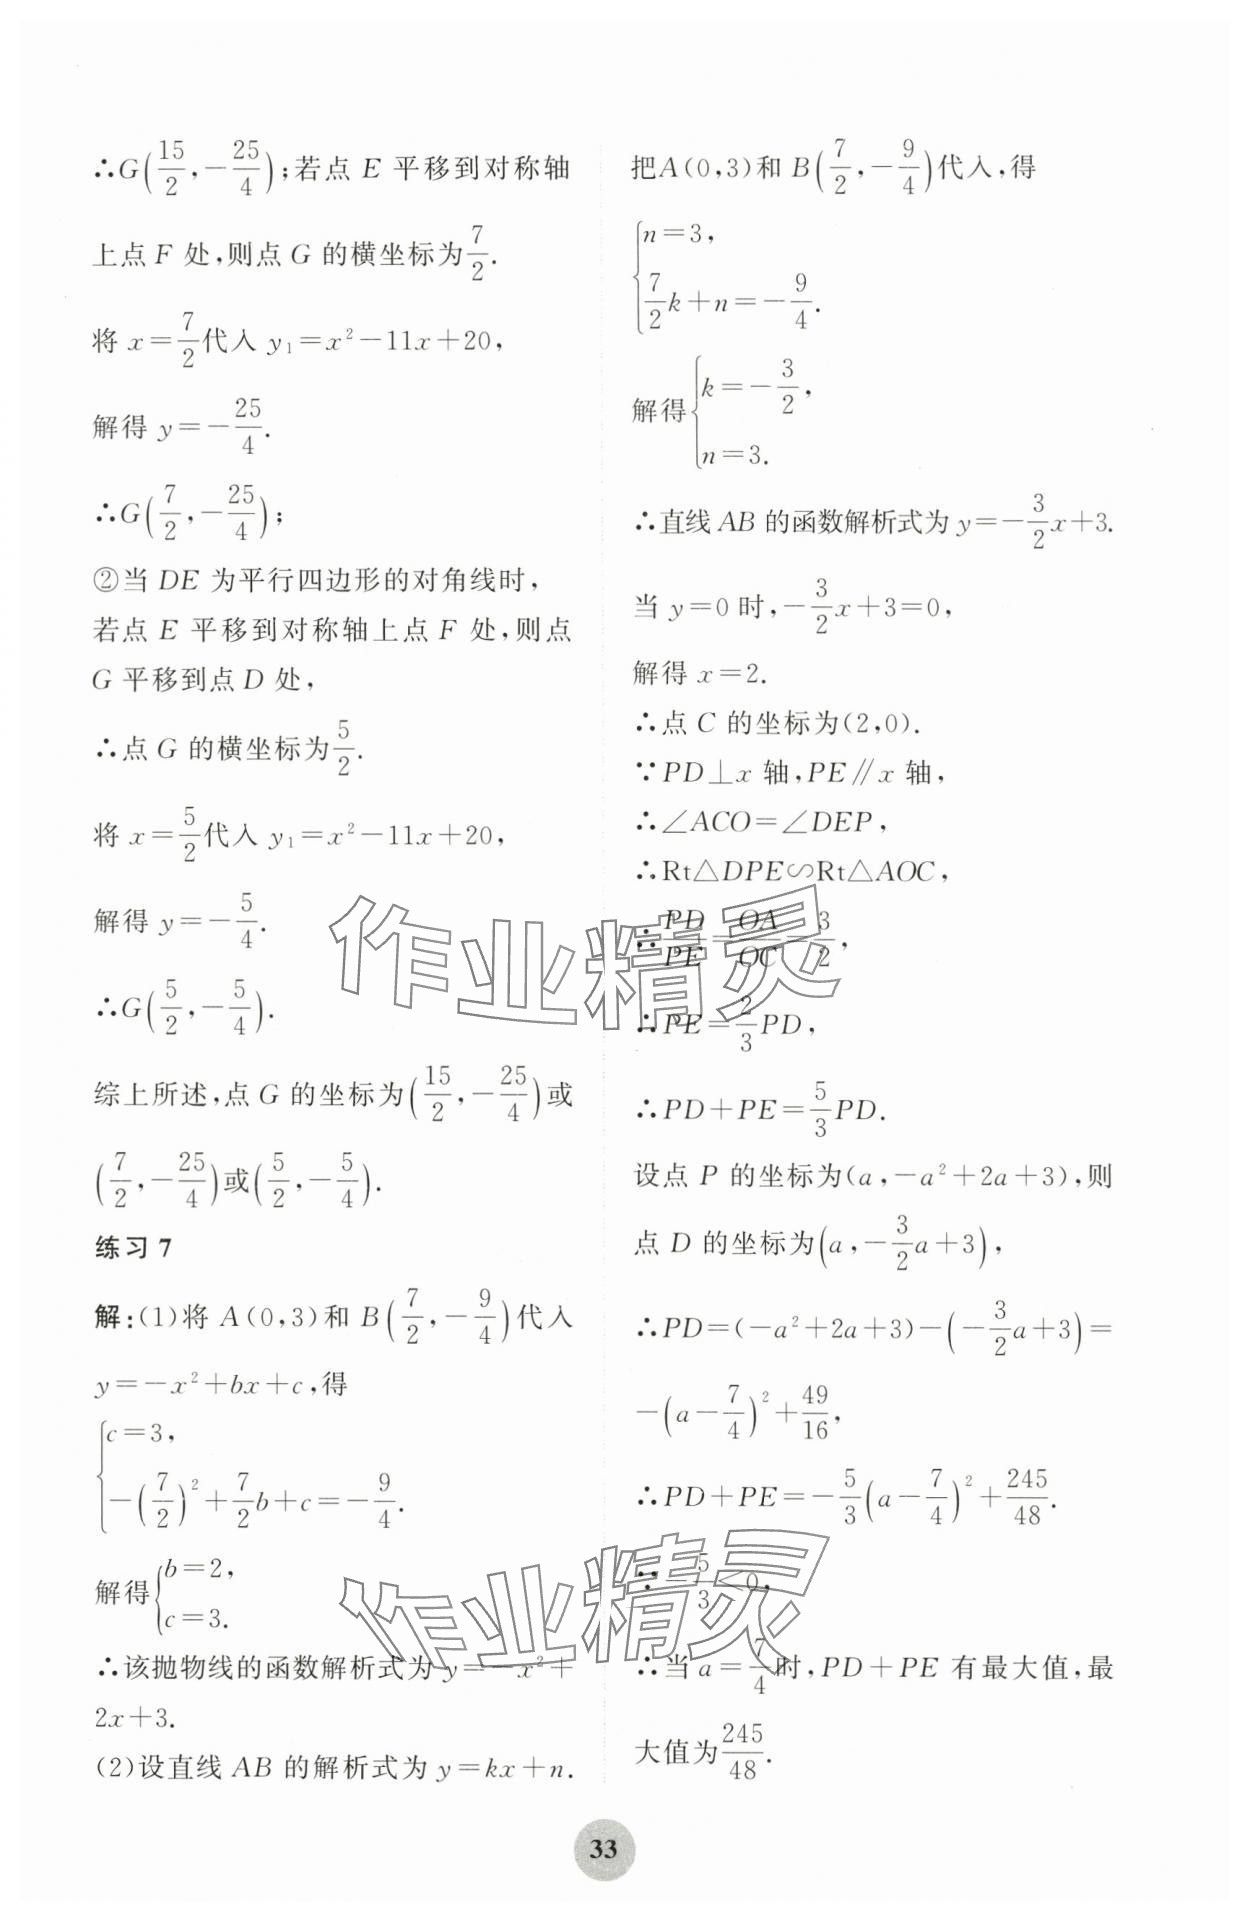 ∴G(15/2,-25/4);若点 E 平移到对称轴
上点 F 处,则点 G 的横坐标为7/2.
将 x=7/2代入 y₁=x²-11x+20,
解得 y=-25/4.
∴G(7/2,-25/4);
②当 DE 为平行四边形的对角线时,
若点 E 平移到对称轴上点 F 处,则点
G 平移到点 D 处,
∴点 G 的横坐标为5/2.
将 x=5/2代入 y₁=x²-11x+20,
解得 y=-5/4.
∴G(5/2,-5/4).
综上所述,点 G 的坐标为(15/2,-25/4)或
(7/2,-25/4)或(5/2,-5/4).
练习 7
解:(1)将 A(0,3)和 B(7/2,-9/4)代入
y=-x²+bx+c,得
{c=3,
-(7/2)²+7/2b+c=-9/4.
解得{b=2,
c=3.
∴该抛物线的函数解析式为 y=-x²+
2x+3.
(2)设直线 AB 的解析式为 y=kx+n.
把A(0,3)和 B(7/2,-9/4)代入,得
{n=3,
7/2k+n=-9/4.
解得{k=-3/2,
n=3.
∴直线 AB 的函数解析式为 y=-3/2x+3.
当 y=0 时,-3/2x+3=0,
解得 x=2.
∴点 C 的坐标为(2,0).
∵PD⊥x 轴,PE∥x 轴,
∴∠ACO=∠DEP,
∴Rt△DPE∽Rt△AOC,
∴PD/PE=OA/OC=3/2,
∴PE=2/3PD,
∴PD+PE=5/3PD.
设点 P 的坐标为(a,-a²+2a+3),则
点 D 的坐标为(a,-3/2a+3),
∴PD=(-a²+2a+3)-(-3/2a+3)=
-(a-7/4)²+49/16,
∴PD+PE=-5/3(a-7/4)²+245/48.
∵-5/3<0,
∴当 a=7/4时,PD+PE 有最大值,最
大值为245/48.
作业精灵
作业精灵
33